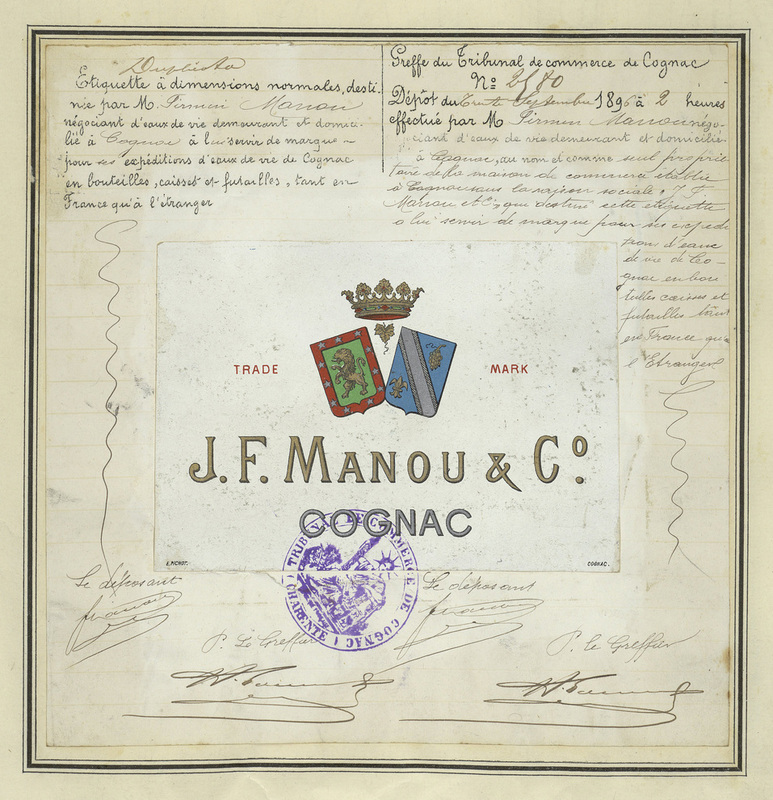 Duplicata
Etiquette à dimensions normales, desti-
née par M. Firmin Manou
négociant d'eaux de vie demeurant et domici-
lié à Cognac à lui servir de marque
pour ses expéditions d'eaux de vie de Cognac
en bouteilles, caisses et futailles, tant en
France qu'à l'étranger
Greffe du Tribunal de commerce de Cognac
No 2180
Dépôt du Trente Septembre 1896 à 2 heures
effectué par M Firmin Manou négo-
ciant d'eaux de vie demeurant et domicilié
à Cognac, au nom et comme seul proprié
taire de la maison de commerce établie
à Cognac sous la raison sociale J. F.
Manou et Cie, qui destine cette étiquette
à lui servir de marque pour ses expédi
tions d'eaux
de vie de Co-
gnac en bou
teilles caisses et
futailles tant
en France qu'à
l'Etranger
TRADE MARK
J. F. MANOU & Co.
COGNAC
E. PICHOT. COGNAC.
TRIBUNAL DE COMMERCE DE COGNAC
(CHARENTE)
Le déposant
Manou
Le déposant
Manou
P. Le Greffier
P. le Greffier